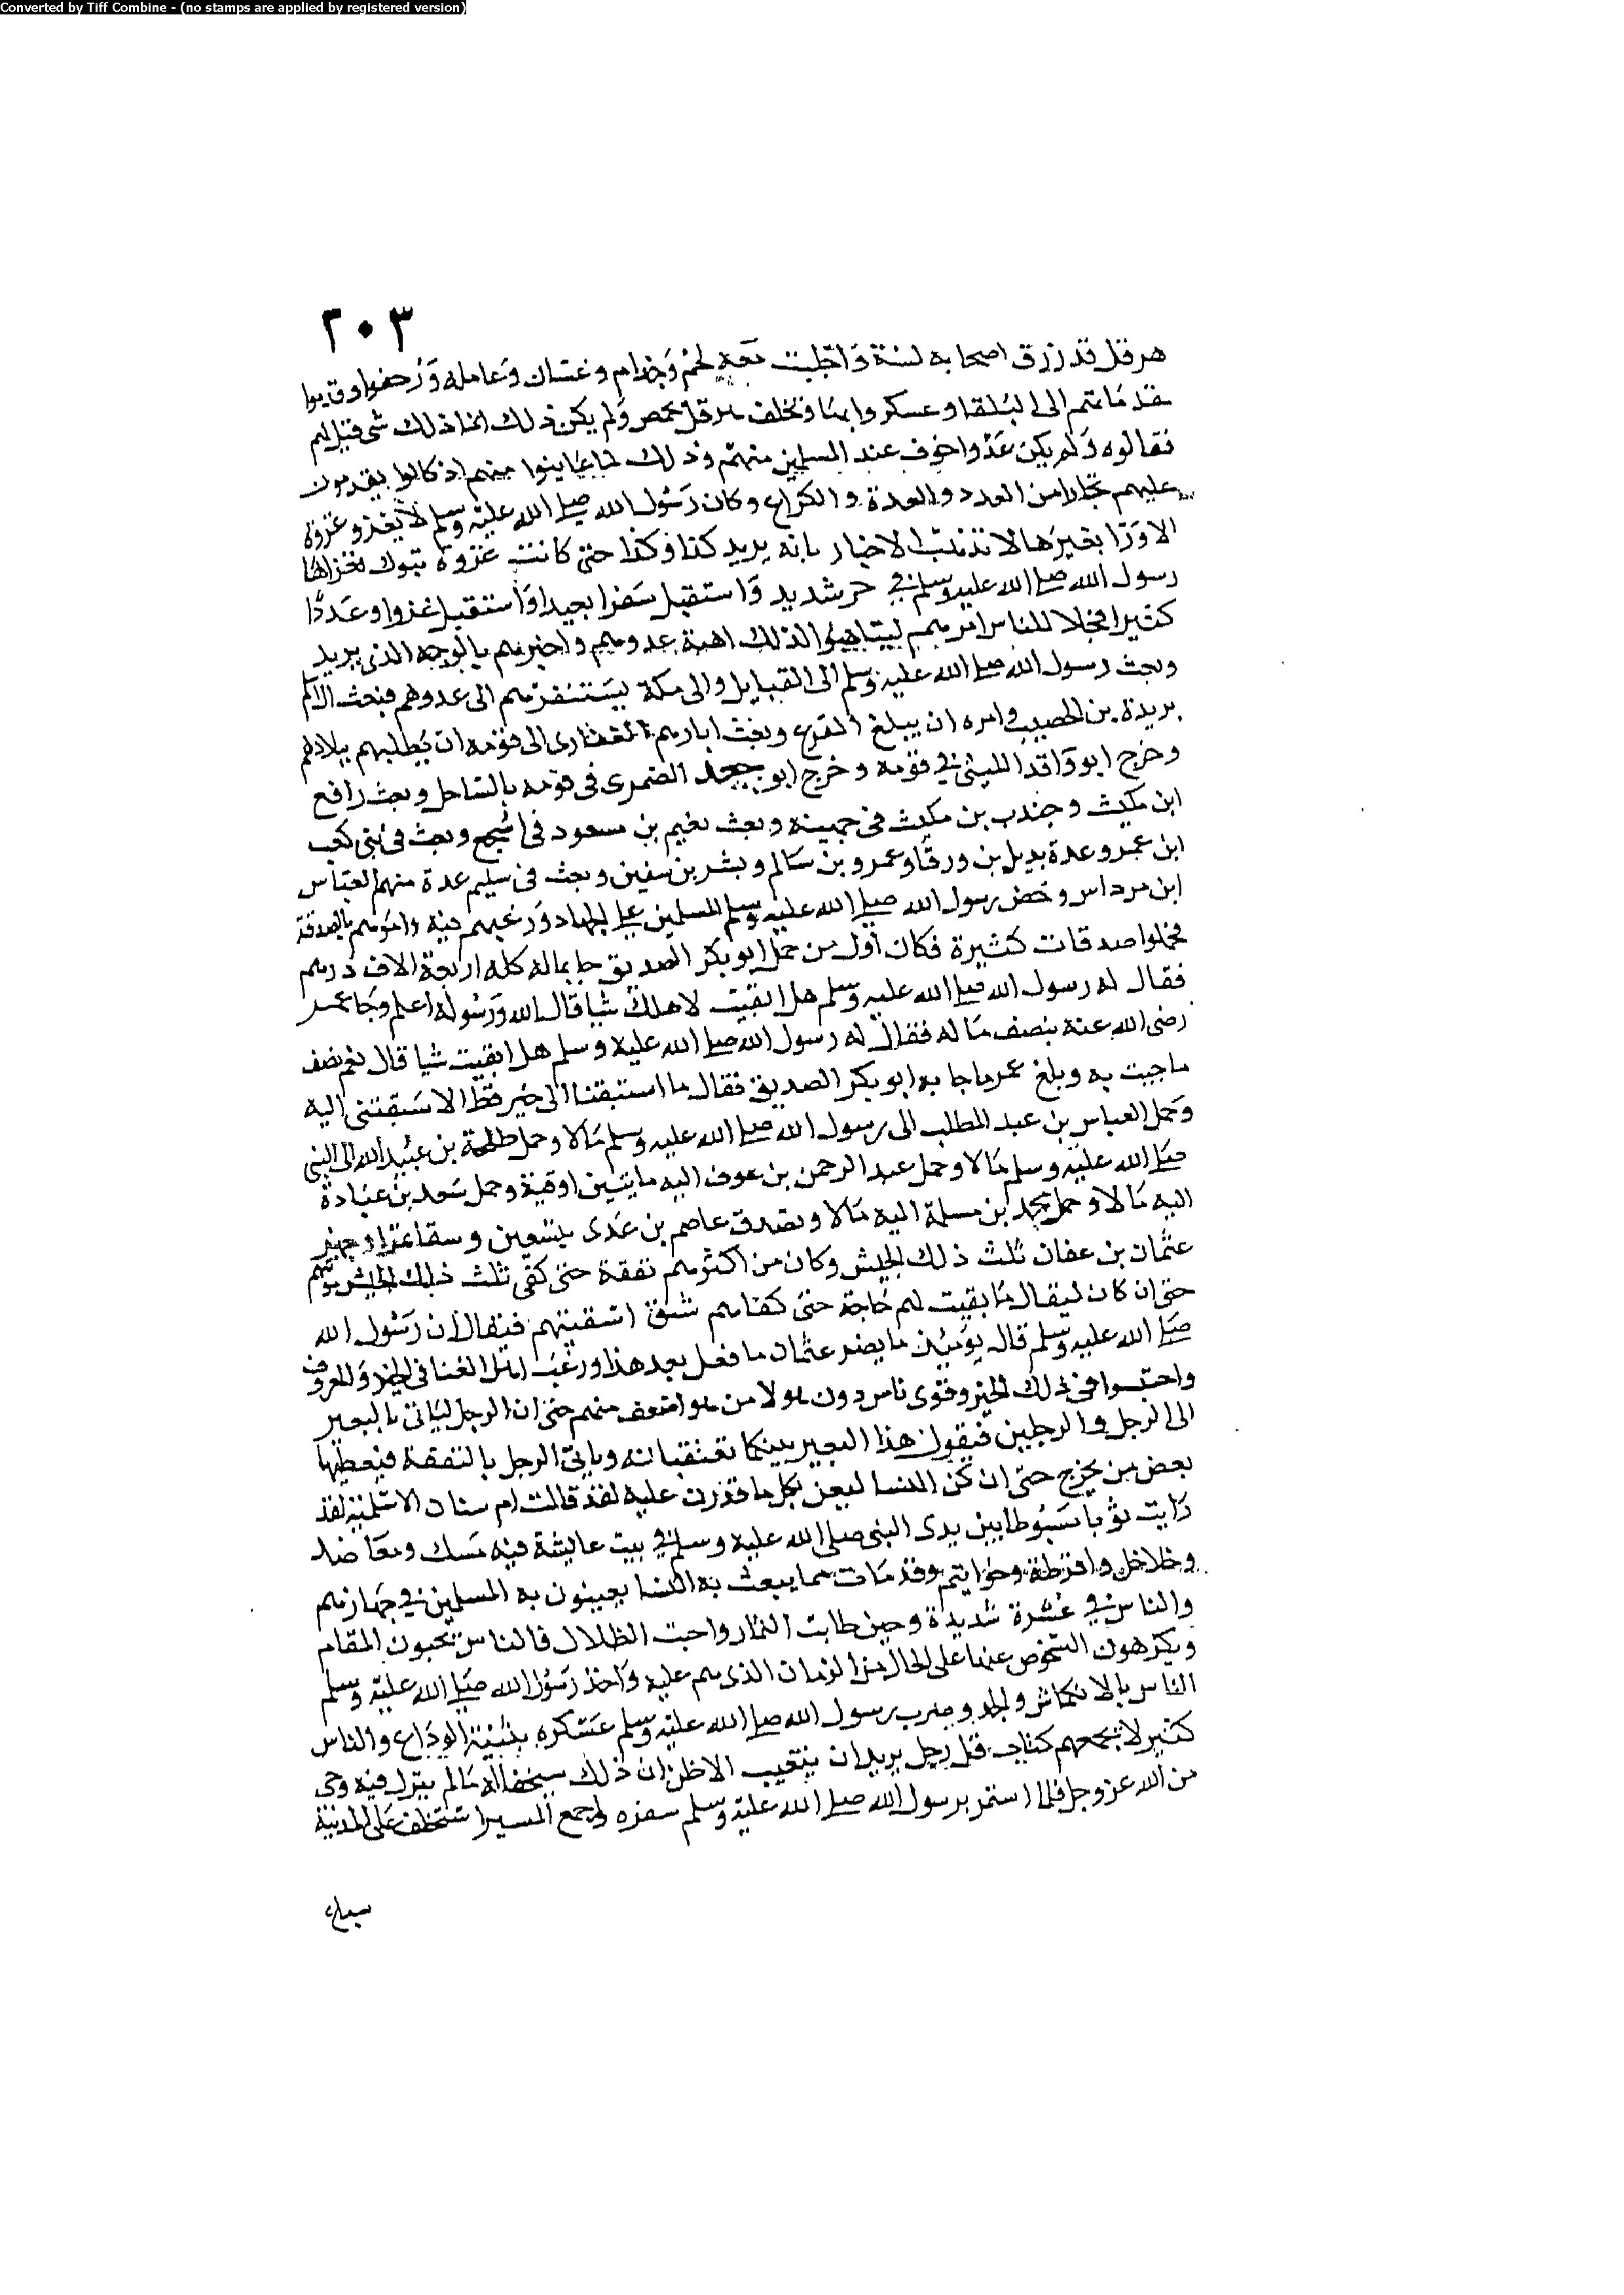 Converted by Tiff Combine - (no stamps are applied by registered version)
٢٠٣
هرقل قد رزق اصحابه لسنة واجلبت معه لخم وجذام وغسان وعامله وزحفوا وقدموا
مقدماتهم الى البلقا وعسكروا بها وتخلف هرقل بحمص ولم يكن ذلك انما ذلك شى قيل لهم
فقالوه ولم يكن عدوا خوف عند المسلمين منهم وذلك لما عاينوا منهم اذ كانوا يقدمون
عليهم تجارا من العدد والعدة والكراع وكان رسول الله صلى الله عليه وسلم لا يغزو غزوة
الا ورا بغيرها لا تذهب الاخبار بانه يريد كذا وكذا حتى كانت غزوة تبوك فغزاها
رسول الله صلى الله عليه وسلم في حر شديد واستقبل سفرا بعيدا واستقبل غزوا وعددا
كثيرا فجلا للناس امرهم ليتاهبوا لذلك اهبة عدوهم واخبرهم بالوجه الذى يريد
وبعث رسول الله صلى الله عليه وسلم الى القبايل والى مكة يستنفرهم الى عدوهم فبعث الى اسلم
بريدة بن الحصيب وامره ان يبلغ الفرع وبعث ابا رهم الغفارى الى قومه ان يطلبهم ببلادهم
وخرج ابو واقد الليثى في قومه وخرج ابو جعد الضمرى فى قومه بالساحل وبعث رافع
ابن مكيث وجندب بن مكيث فى جهينة وبعث نعيم بن مسعود فى اشجع وبعث فى بنى كعب
ابن عمرو عدة بديل بن ورقا وعمرو بن سالم وبشر بن سفين وبعث فى سليم عدة منهم العباس
ابن مرداس وحض رسول الله صلى الله عليه وسلم المسلمين على الجهاد ورغبهم فيه وامرهم بالصدقة
فحملوا صدقات كثيرة فكان اول من حمل ابو بكر الصديق جا بماله كله اربعة الاف درهم
فقال له رسول الله صلى الله عليه وسلم هل ابقيت لاهلك شيا قال الله ورسوله اعلم وجا عمر
رضى الله عنه بنصف ماله فقال له رسول الله صلى الله عليه وسلم هل ابقيت شيا قال نعم نصف
ما جيت به وبلغ عمر ما جا به ابو بكر الصديق فقال ما استبقنا الى خير قط الا سبقتنى اليه
وحمل العباس بن عبد المطلب الى رسول الله صلى الله عليه وسلم مالا وحمل طلحة بن عبيد الله الى النبى
صلى الله عليه وسلم مالا وحمل عبد الرحمن بن عوف اليه مايتين اوقية وحمل سعد بن عبادة
اليه مالا وحمل محمد بن مسلمة اليه مالا وتصدق عاصم بن عدى بتسعين وسقا تمرا وجهز
عثمان بن عفان ثلث ذلك الجيش وكان من اكثرهم نفقة حتى كفى ثلث ذلك الجيش مونتهم
حتى ان كان ليقال ما بقيت لهم حاجة حتى كفاهم شنق اسقيتهم فيقال ان رسول الله
صلى الله عليه وسلم قال يوميذ ما يضر عثمان ما فعل بعد هذا ورغب اهل الغنا فى الخير والمعروف
واحتسبوا فى ذلك الخير وقوى ناس دون هولا من هو اضعف منهم حتى ان الرجل لياتى بالبعير
الى الرجل والرجلين فيقول هذا البعير بينكما تعتقبانه وياتى الرجل بالنفقة فيعطيها
بعض من يخرج حتى ان كن النسا ليعن بكل ما قدرن عليه لقد قالت ام سنان الاسلمية لقد
رايت ثوبا مبسوطا بين يدى النبى صلى الله عليه وسلم في بيت عايشة فيه مسك ومعاضد
وخلاخل واقرطة وخواتيم وقدمات مما يبعث به النسا يعينون به المسلمين في جهازهم
والناس في عسرة شديدة وحين طابت الثمار واحبت الظلال فالناس يحبون المقام
ويكرهون الشخوص عنها على الحال من الزمان الذى هم عليه واخذ رسول الله صلى الله عليه وسلم
الناس بالانكماش والجد وضرب رسول الله صلى الله عليه وسلم عسكره بثنية الوداع والناس
كثير لا يجمعهم كتاب قل رجل يريد ان يتغيب الا ظن ان ذلك سيخفا له ما لم ينزل فيه وحى
من الله عز وجل فلما استمر برسول الله صلى الله عليه وسلم سفره واجمع المسير استخلف على المدينة
سباع